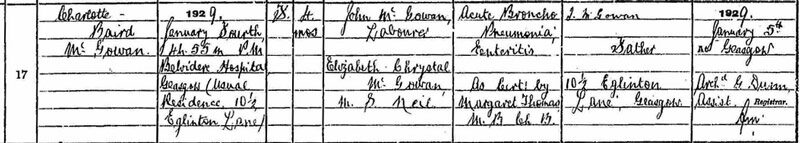 17
Charlotte
Baird
McGowan.
1929.
January Fourth
4h. 55m P.M.
Belvidere Hospital
Glasgow (Usual
Residence. 10½
Eglinton Lane)
4.
mos
John McGowan,
Labourer
Elizabeth Chrystal
McGowan,
m. S. Neil.
Acute Broncho
Pneumonia,
Enteritis
As Cert. by
Margaret Thomas
M.B. Ch.B.
J. McGowan
Father
10½ Eglinton
Lane, Glasgow.
1929.
January 5th
At Glasgow
Archd. G. Dunn
Assist. Registrar.